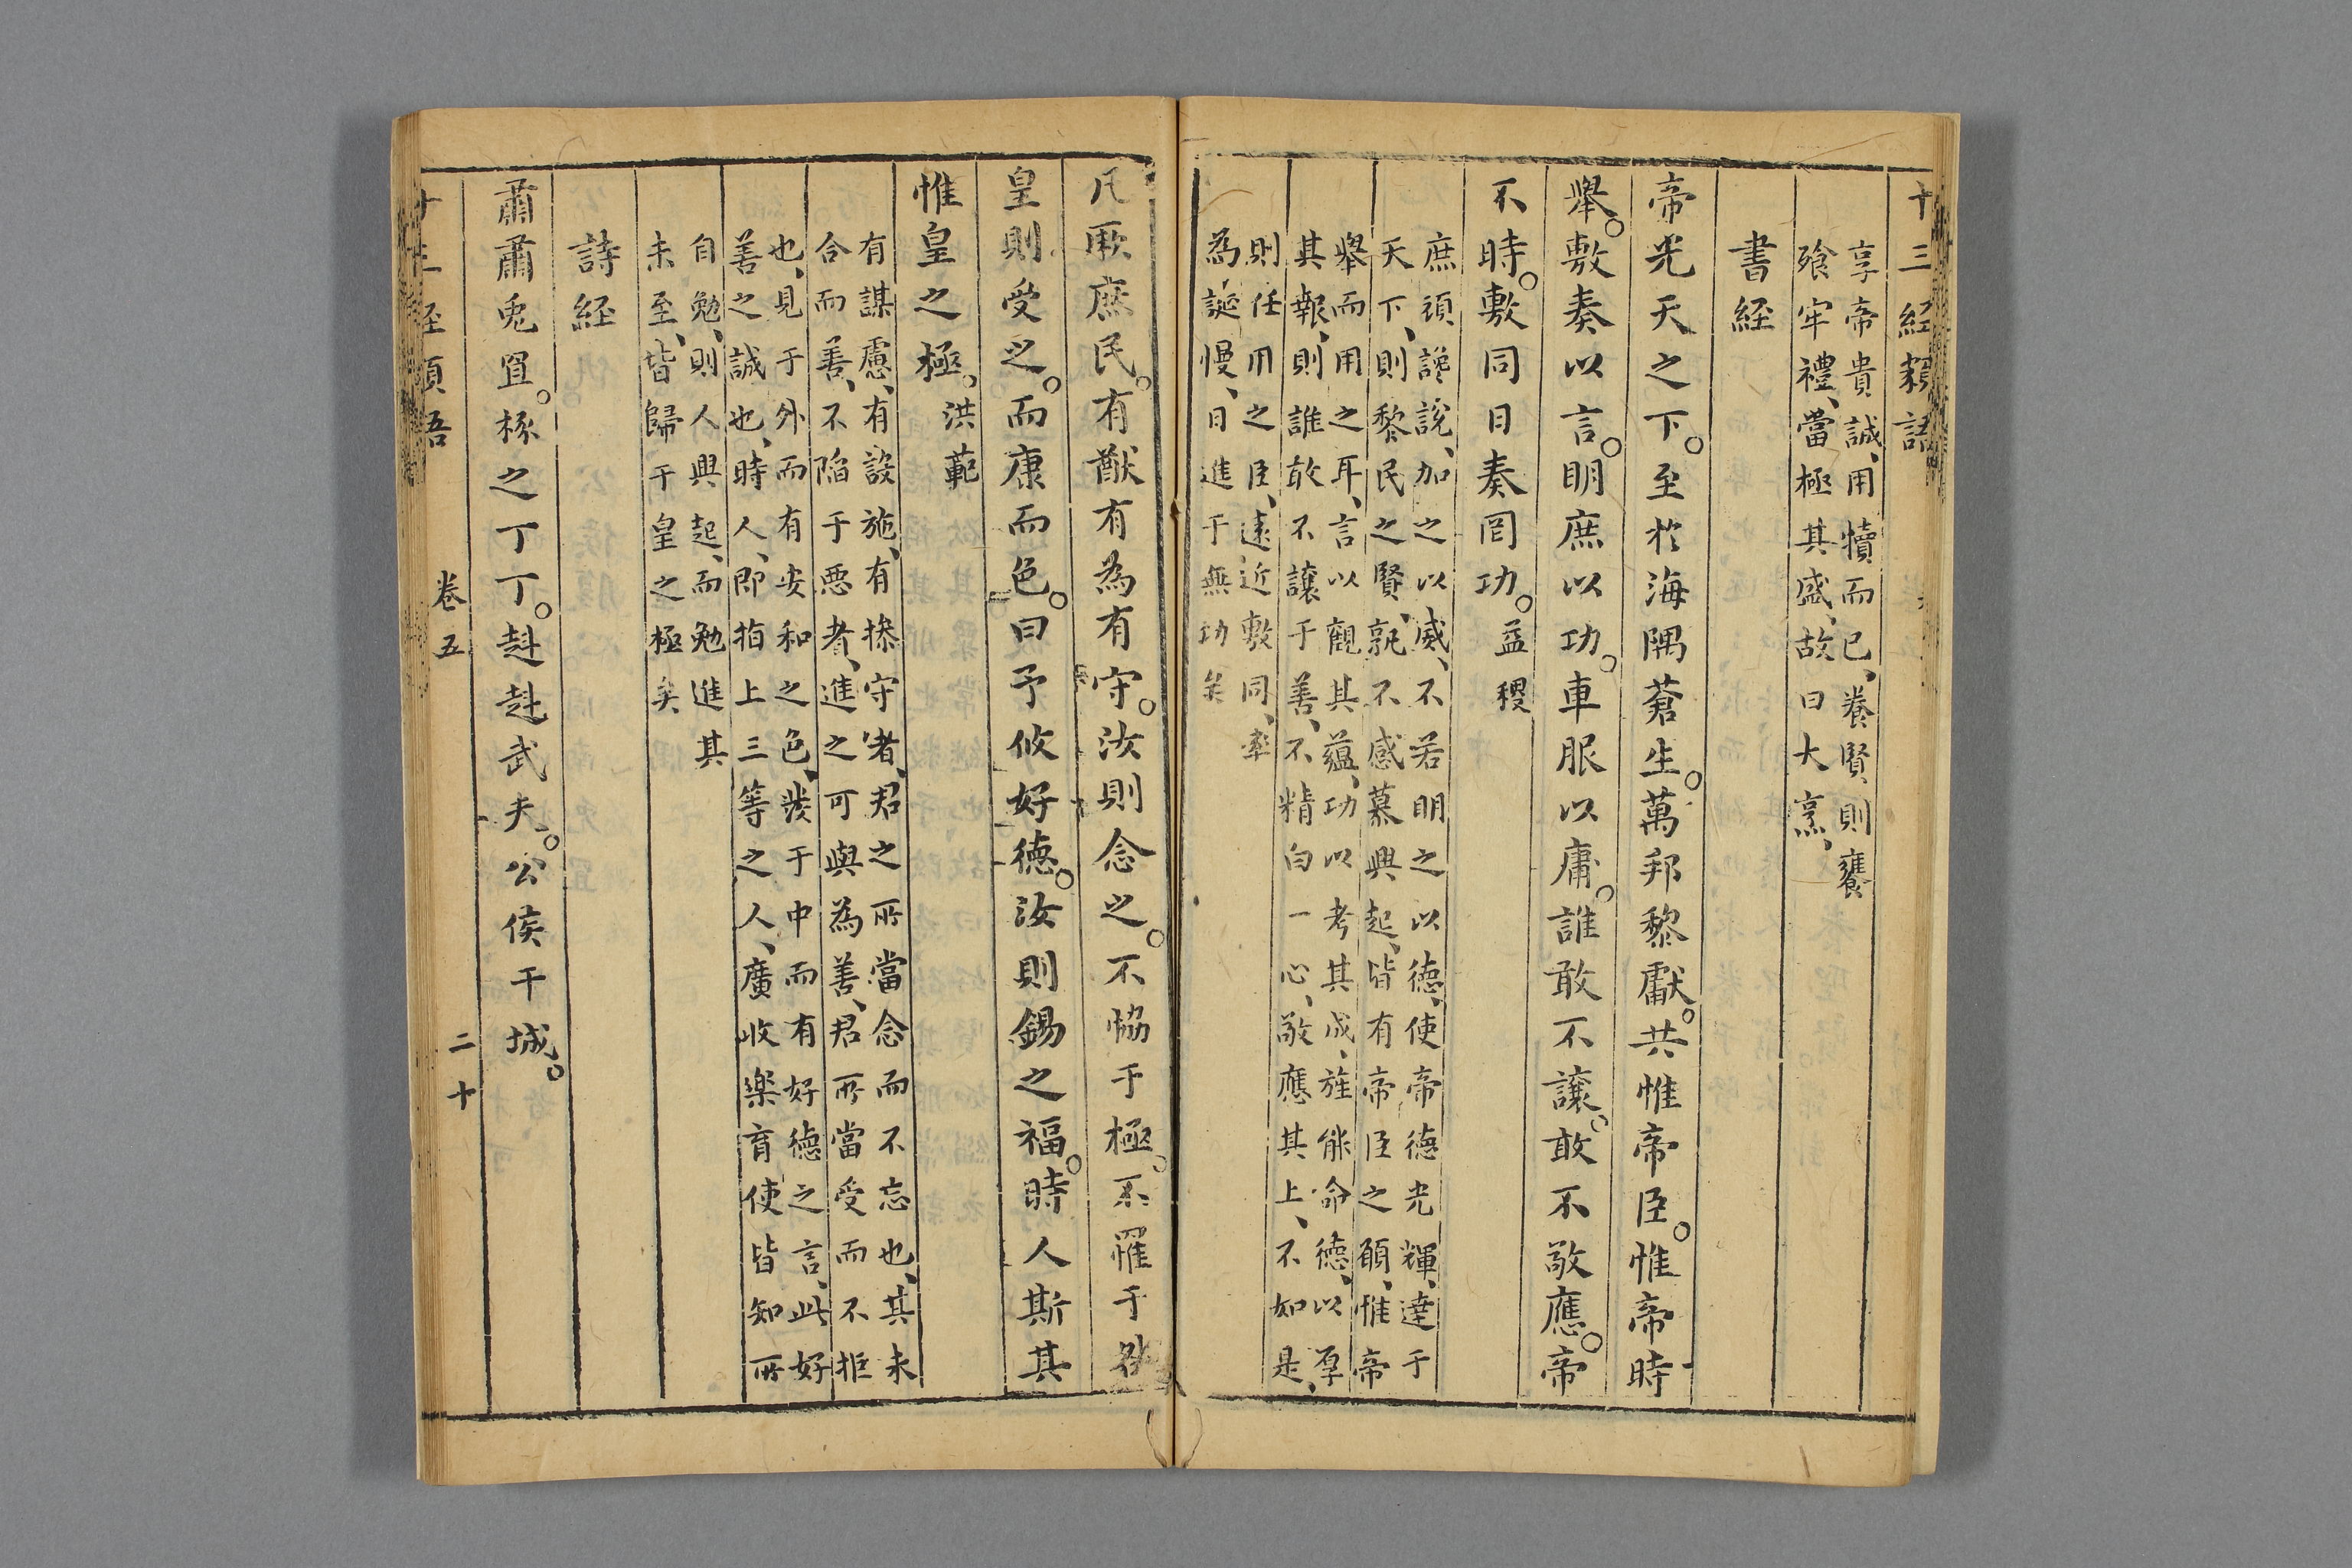 十三經類語
享帝貴誠、用犢而已、養賢、則饔
飱牢禮、當極其盛、故曰大烹、
書經
帝光天之下。至於海隅蒼生。萬邦黎獻。共惟帝臣。惟帝時
舉。敷奏以言。明庶以功。車服以庸。誰敢不讓。敢不敬應。帝
不時。敷同日奏罔功。益稷
庶頑讒說、加之以威、不若明之以德、使帝德光輝、達于
天下、則黎民之賢、孰不感慕興起、皆有帝臣之願、惟帝
舉而用之耳、言以觀其蘊、功以考其成、旌能命德、以厚
其報、則誰敢不讓于善、不精白一心、敬應其上、不如是、
則任用之臣、遠近敷同、率
為誕慢、日進于無功矣
凡厥庶民。有猷有為有守。汝則念之。不協于極。不罹于咎
皇則受之。而康而色。曰予攸好德。汝則錫之福。時人斯其
惟皇之極。洪範
有謀慮、有設施、有操守者、君之所當念而不忘也、其未
合而善、不陷于惡者、進之可與為善、君所當受而不拒
也、見于外而有安和之色、發于中而有好德之言、此好
善之誠也、時人、即指上三等之人、廣收樂育使皆知所
自勉、則人興起、而勉進其
未至、皆歸于皇之極矣
詩經
肅肅兎罝。椓之丁丁。赳赳武夫。公侯干城。
十三經類語 卷五 二十